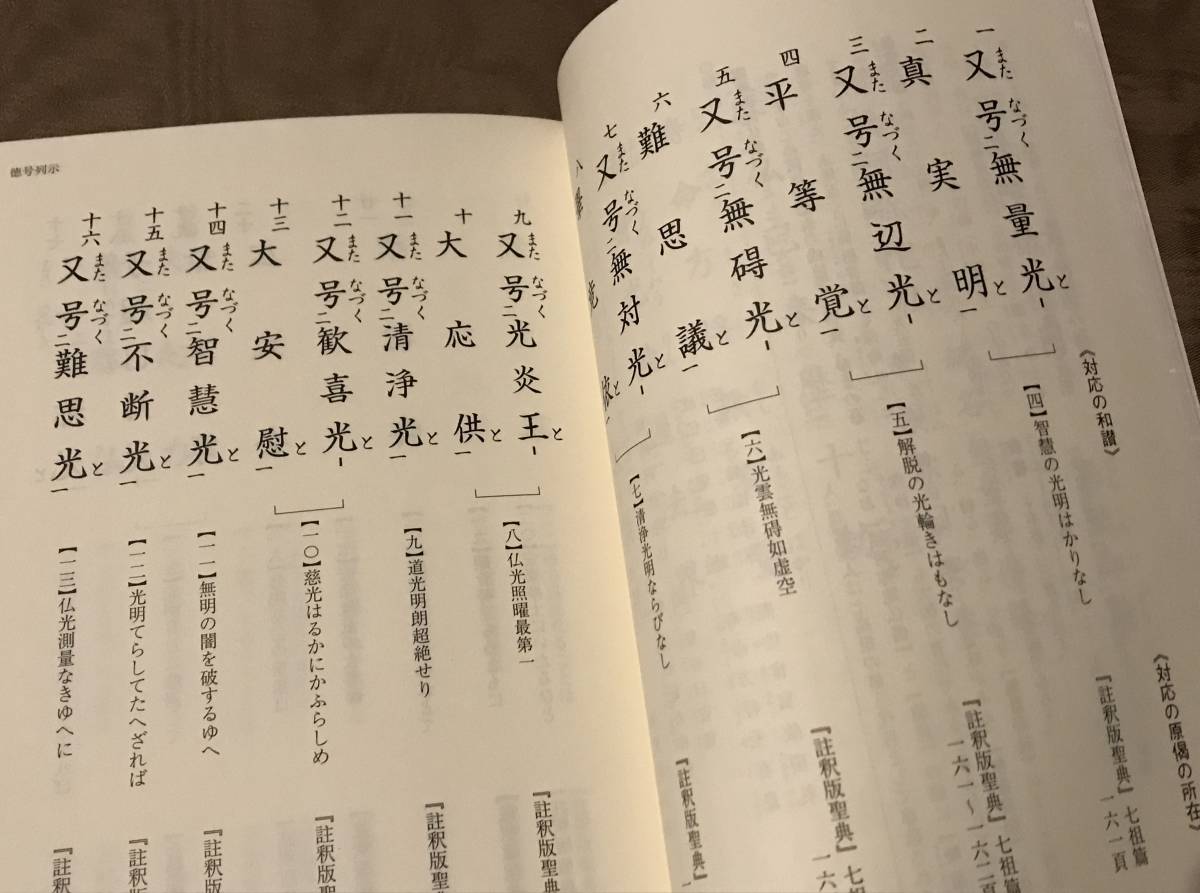 〈対応の和讃〉
〈対応の原偈の所在〉
一 又号二無量光一と
また なづく
【四】智慧の光明はかりなし
『註釈版聖典』七祖篇
一六一頁
二 真実明一と
三 又号二無辺光一と
また なづく
【五】解脱の光輪きはもなし
『註釈版聖典』七祖篇
一六一〜一六二頁
四 平等覚一と
五 又号二無碍光一と
また なづく
【六】光雲無碍如虚空
『註釈版聖典』七祖
一六
六 難思議一と
七 又号二無対光一と
また なづく
【七】清浄光明ならびなし
『註釈版聖典』
八
徳号列示
九 又号二光炎王一と
また なづく
【八】仏光照曜最第一
『註釈版聖典
十 大応供一と
十一 又号二清浄光一と
また なづく
【九】道光明朗超絶せり
『註釈版聖典
十二 又号二歓喜光一と
また なづく
【一〇】慈光はるかにかふらしめ
『註釈版
十三 大安慰一と
十四 又号二智慧光一と
また なづく
【一一】無明の闇を破するゆへ
『註釈
十五 又号二不断光一と
また なづく
【一二】光明てらしてたへざれば
『註釈
十六 又号二難思光一と
また なづく
【一三】仏光測量なきゆへに
『註釈